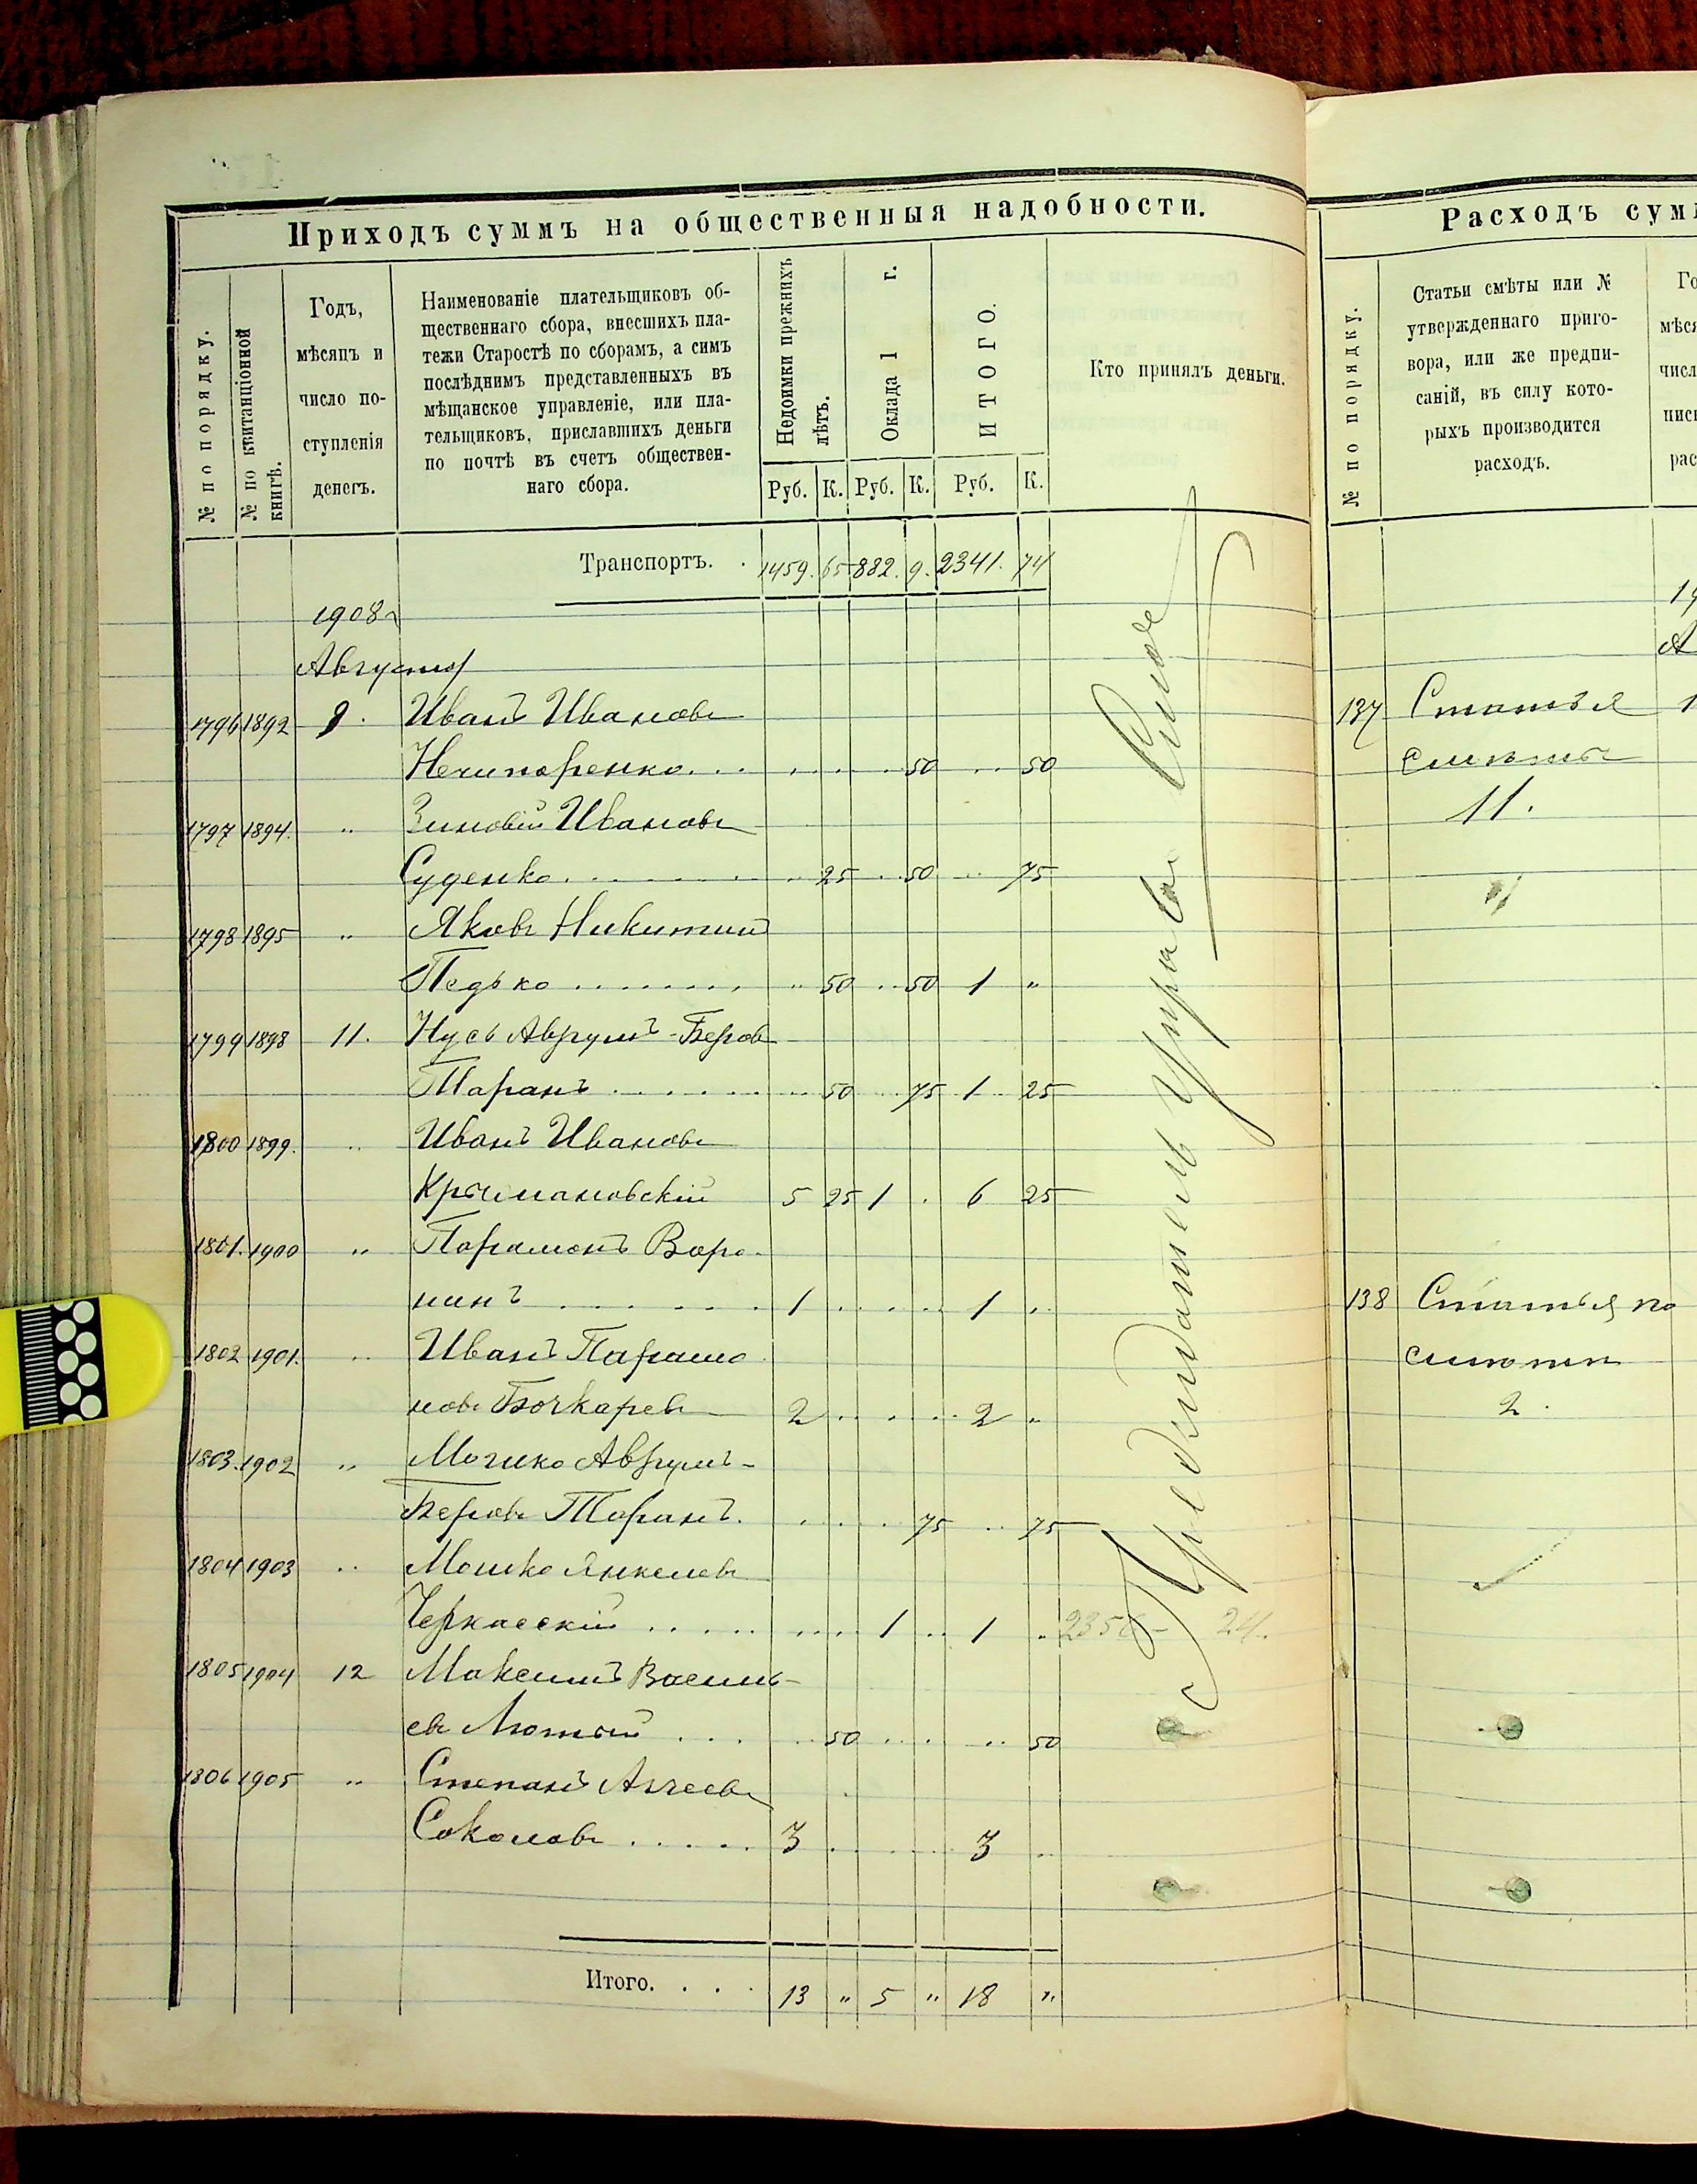 Приходъ суммъ на общественныя надобности.
№ по порядку.
№ по квитанціонной
книгѣ.
Годъ,
мѣсяцъ и
число по-
ступленія
денегъ.
Наименованіе плательщиковъ об-
щественнаго сбора, внесшихъ пла-
тежи Старостѣ по сборамъ, а симъ
послѣднимъ представленныхъ въ
мѣщанское управленіе, или пла-
тельщиковъ, приславшихъ деньги
по почтѣ въ счетъ обществен-
наго сбора.
Недоимки прежнихъ
лѣтъ.
Оклада 1 г.
ИТОГО.
Кто принялъ деньги.
Руб. К. Руб. К. Руб. К.
Транспортъ. . 1459. 65 882. 9. 2341. 74
1908 г
Августъ
1796 1892 9. Иванъ Ивановъ
Нечипоренко . . . 50 . . 50
1797 1894. „ Зиновій Ивановъ
Суденко . . . . 25 . . 50 . . 75
1798 1895 „ Яковъ Никитинъ
Педько . . . . „ 50 . . 50 1 „
1799 1898 11. Нусь Аврумъ-Беровъ
Таранъ . . . . 50 . . 75 1 25
1800 1899. „ Иванъ Ивановъ
Крымановскій 5 25 1 . 6 25
1801. 1900 „ Парамонъ Воро-
нинъ . . . . 1 . . . . 1 „
1802 1901. „ Иванъ Парамо
новъ Бочкаревъ 2 . . . . 2 „
1803. 1902 „ Мошко Аврумъ-
Беровъ Таранъ. . . . 75 . . 75
1804 1903 „ Мошко Янкелевъ
Черкасскій . . . . 1 . . 1 „
1805 1904 12 Максимъ Василь-
евъ Лютый . . . 50 . . . . 50
1806 1905 „ Степанъ Агеевъ
Соколовъ . . . . 3 . . . . 3 „
Итого. . . . 13 „ 5 „ 18 „
Предсѣдатель Управы
Расходъ сум
№ по порядку.
Статьи смѣты или №
утвержденнаго приго-
вора, или же предпи-
саній, въ силу кото-
рыхъ производится
расходъ.
Го
мѣся
числ
пис
рас
19
А
137 Статья 1
смѣты
11.
138 Статья по
смѣтѣ
2.